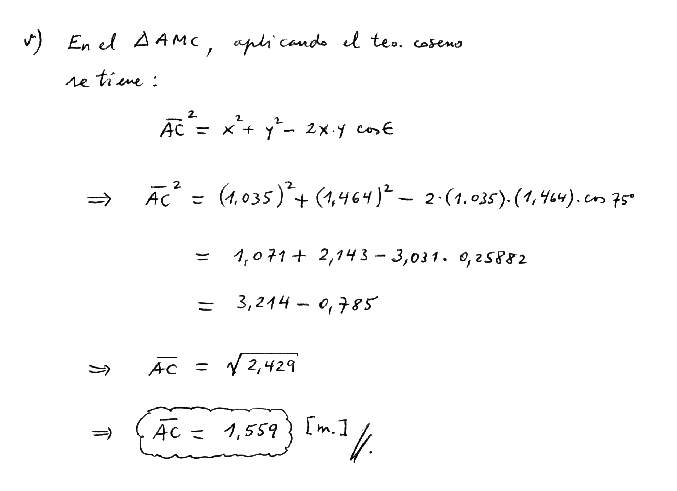 v) En el △AMC, aplicando el teo. coseno
se tiene:
A̅C̅² = x² + y² - 2x·y cos ϵ
⇒ A̅C̅² = (1,035)² + (1,464)² - 2·(1.035)·(1,464)·cos 75°
= 1,071 + 2,143 - 3,031 · 0,25882
= 3,214 - 0,785
⇒ A̅C̅ = √2,429
⇒ A̅C̅ = 1,559 [m.] //.